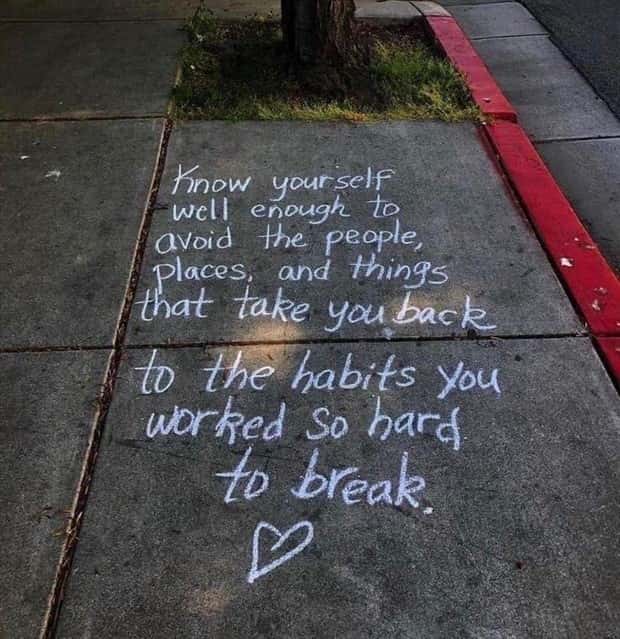 Know yourself
well enough to
avoid the people,
places, and things
that take you back
to the habits you
worked so hard
to break.